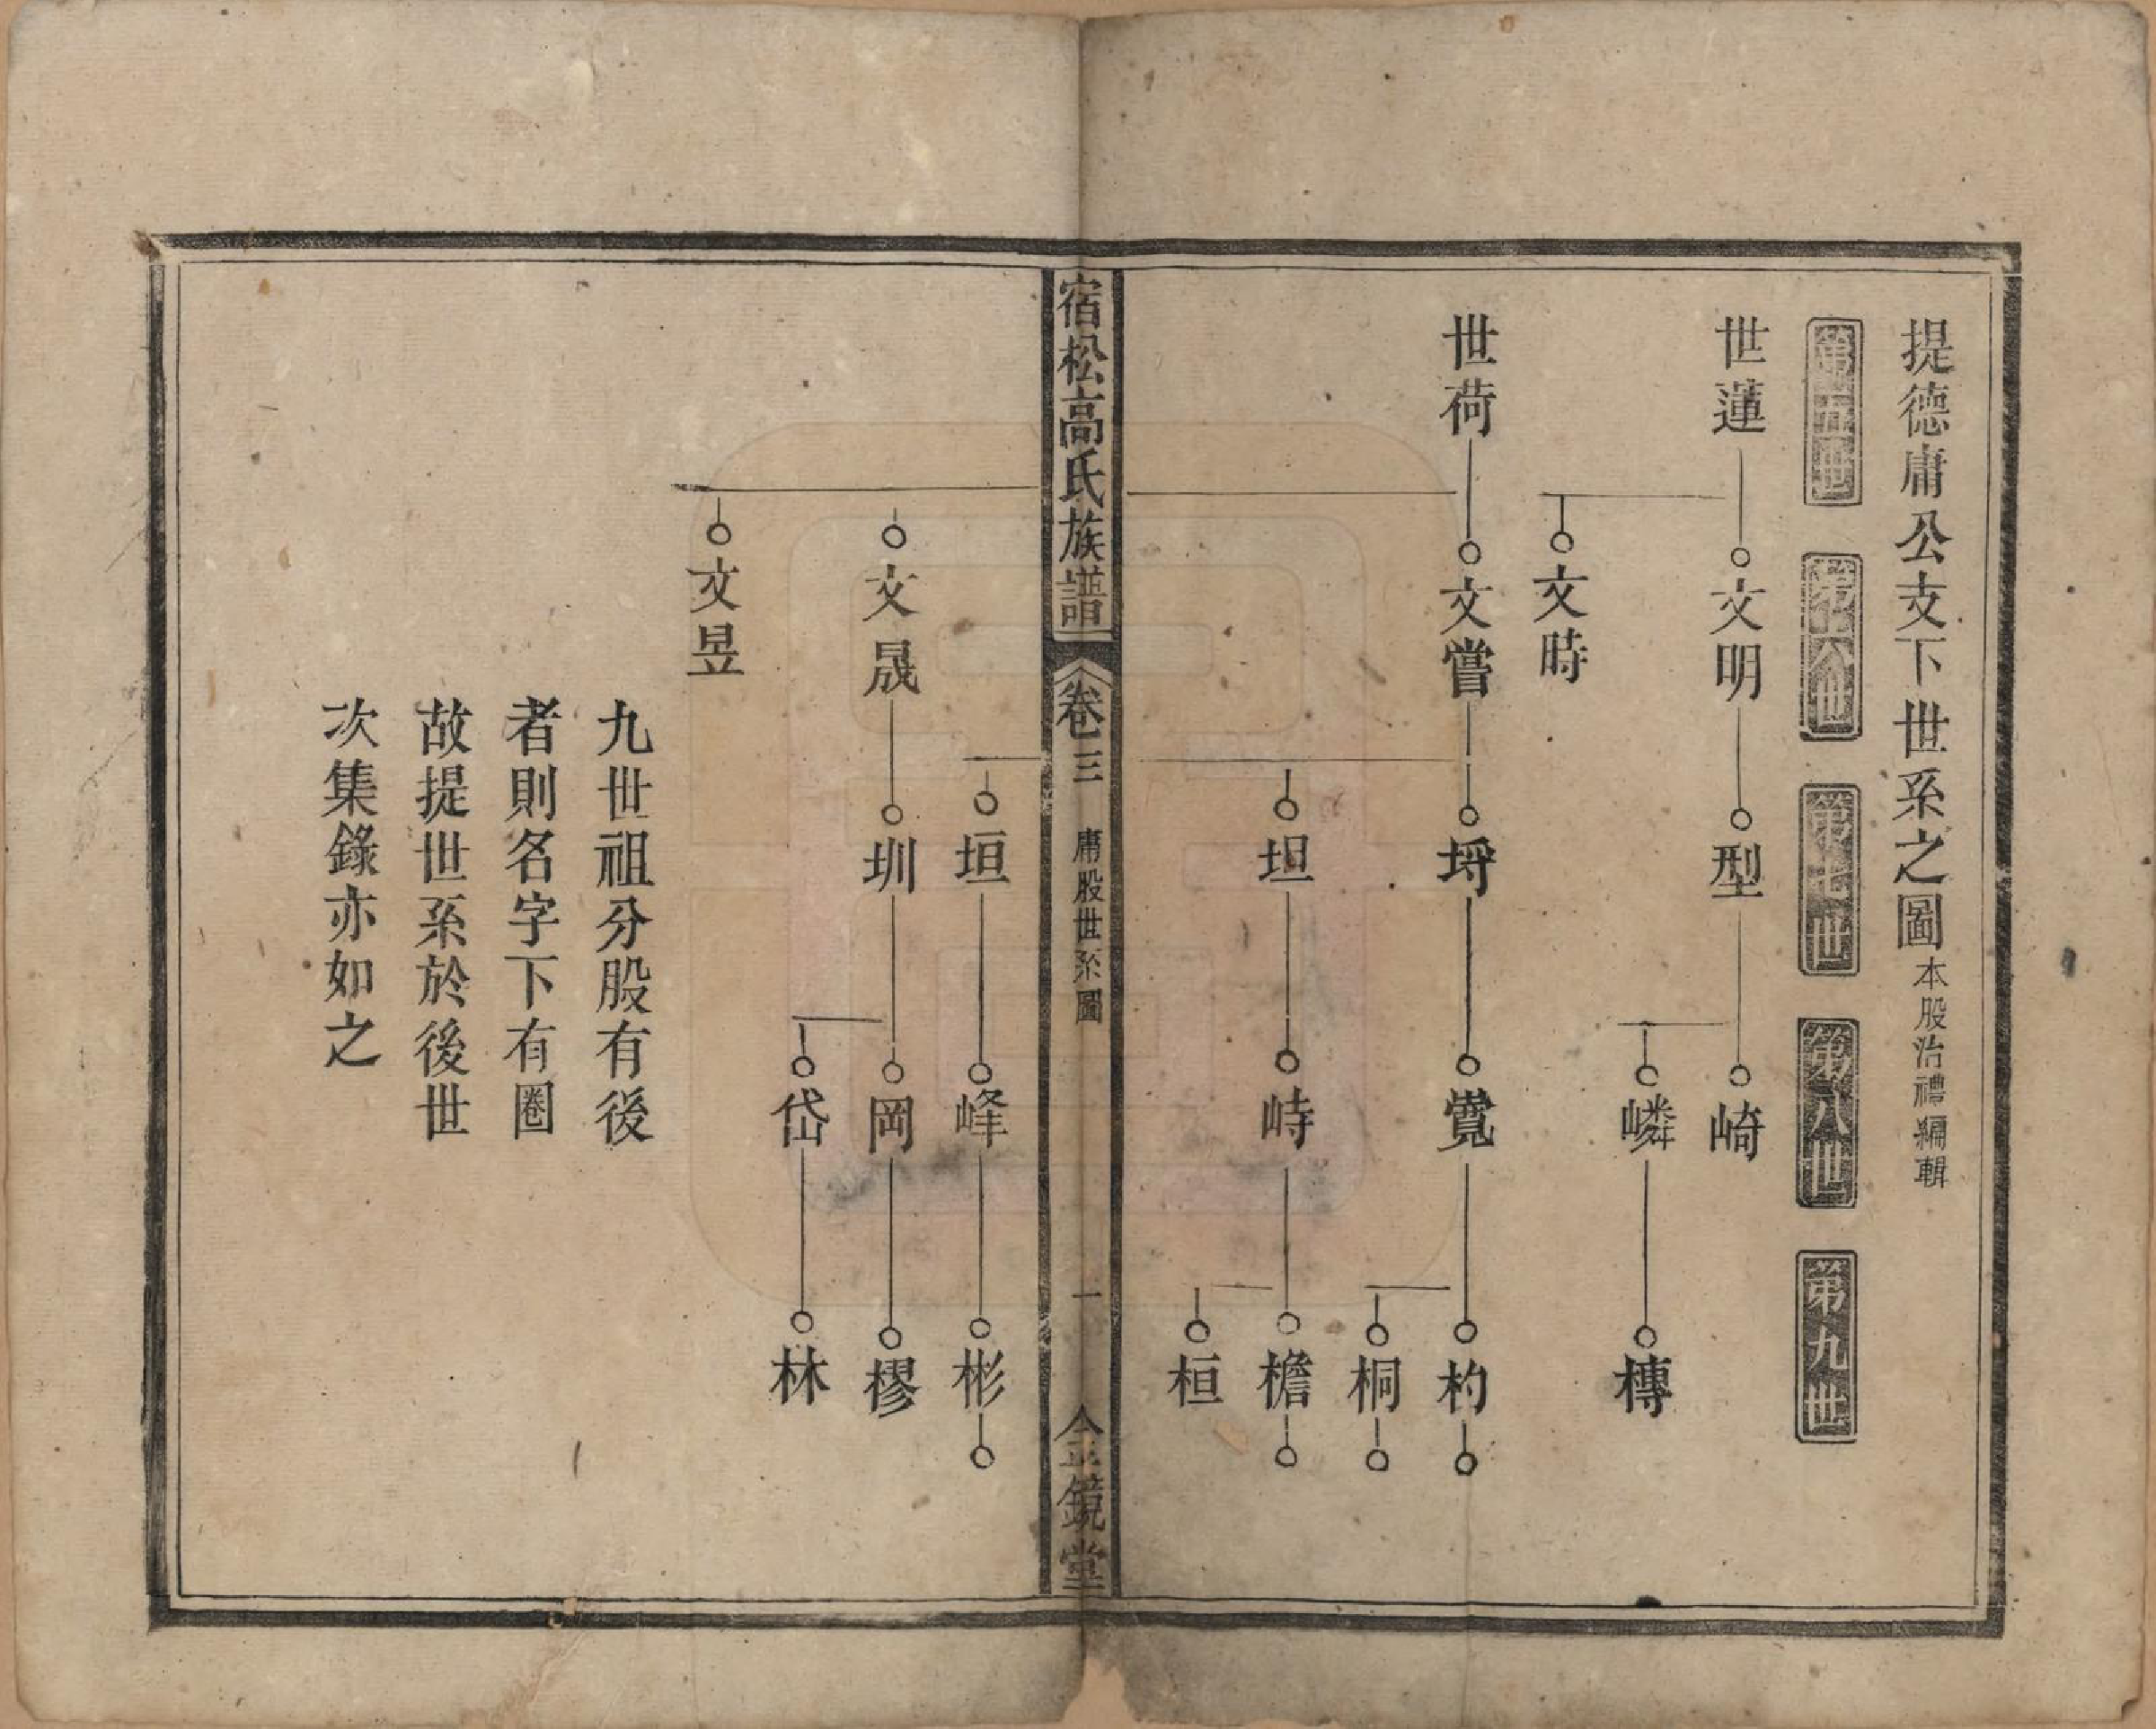 提德庸公支下世系之圖 本股治禮編輯
第五世
第六世
第七世
第八世
第九世
世蓮
文明
型
崎
嶙
槫
文時
世荷
文嘗
埒
覮
杓
桐
坦
峙
檐
桓
宿松高氏族譜
卷三
庸股世系圖
一
金鏡堂
垣
峰
彬
文晟
圳
岡
樛
岱
林
文昱
九世祖分股有後
者則名字下有圈
故提世系於後世
次集錄亦如之